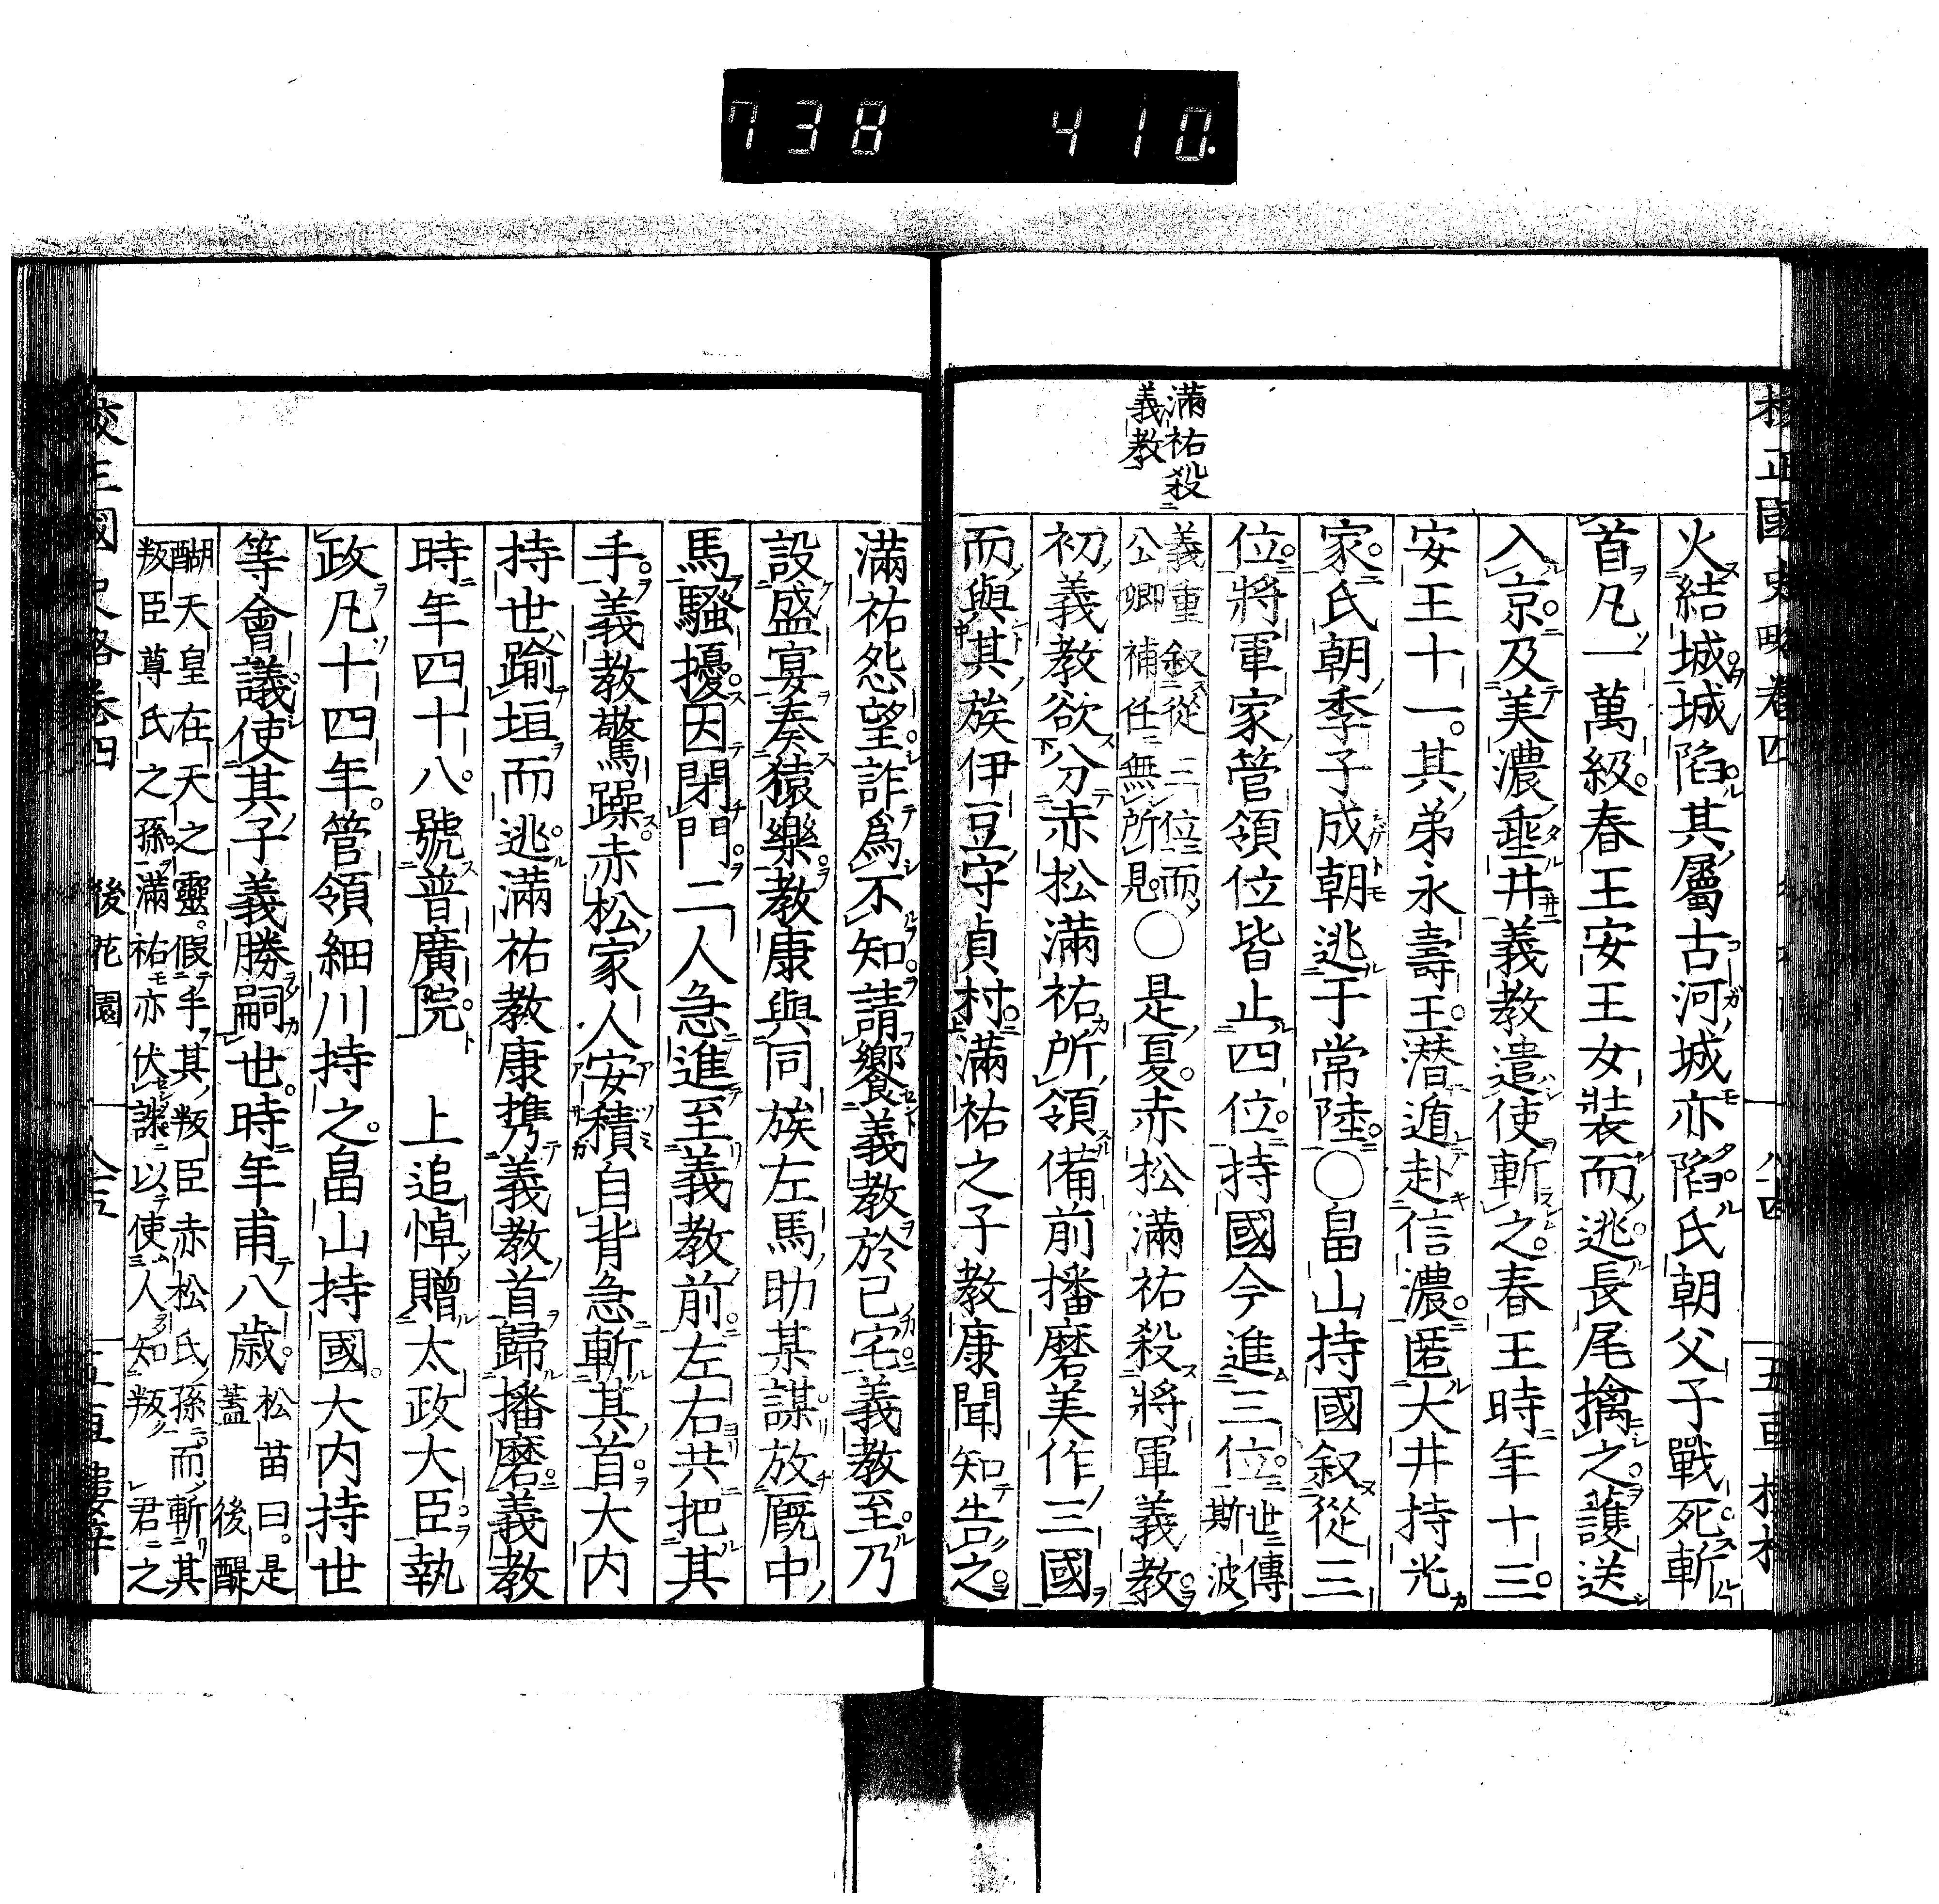 738 410.
校正國史略卷四
五車樓梓
滿祐殺
義教
火結城城陷其屬古河城亦陷氏朝父子戰死斬
首凡一萬級春王安王女裝而逃長尾擒之護送
入京及美濃垂井義教遣使斬之春王時年十三
安王十一其弟永壽王潜遁赴信濃匿大井持光
家氏朝季子成朝逃于常陸〇畠山持國叙從三
位將軍家管領位皆止四位持國今進三位世傳斯波
義重叙從三位而公卿補任無所見〇是夏赤松滿祐殺將軍義教
初義教欲分赤松滿祐所領備前播磨美作三國
而與其族伊豆守貞村滿祐之子教康聞知告之
滿祐怨望詐爲不知請饗義教於己宅義教至乃
設盛宴奏猿樂教康與同族左馬助某謀放厩中
馬騷擾因閉門二人急進至義教前左右共把其
手義教驚躁赤松家人安積自背急斬其首大内
持世踰垣而逃滿祐教康携義教首歸播磨義教
時年四十八號普廣院 上追悼贈太政大臣執
政凡十四年管領細川持之畠山持國大内持世
等會議使其子義勝嗣世時年甫八歳松苗曰是蓋後醍
醐天皇在天之靈假手其叛臣赤松氏孫而斬其
叛臣尊氏之孫滿祐亦伏誅以使人知叛君之
校正國史略卷四 後花園 五車樓梓